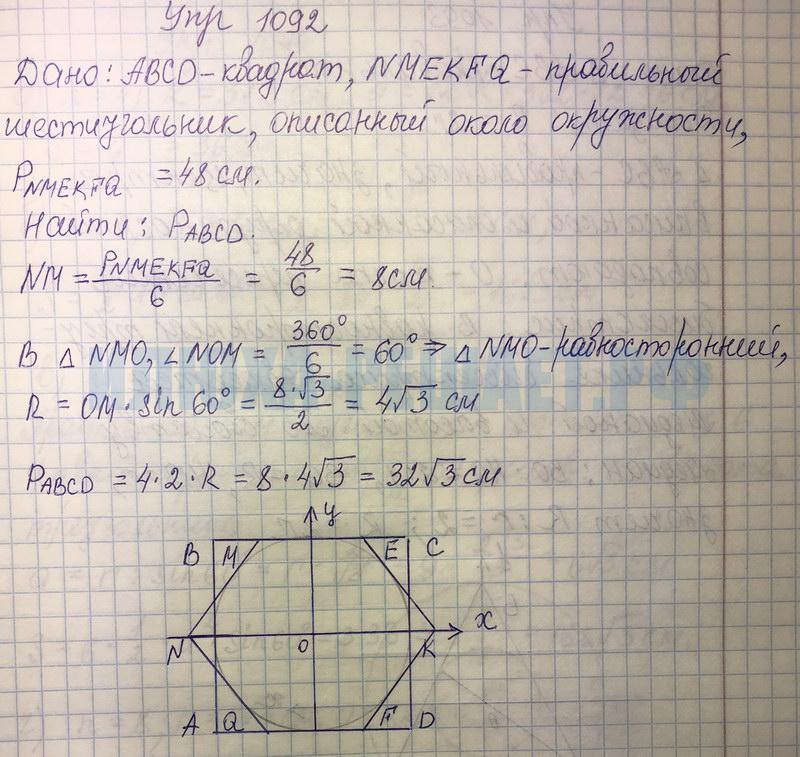 Упр 1092
Дано: ABCD-квадрат, NMEKFQ-правильный
шестиугольник, описанный около окружности,
P_NMEKFQ = 48 см.
Найти: P_ABCD.
NM = P_NMEKFQ / 6 = 48/6 = 8см.
В △ NMO, ∠NOM = 360°/6 = 60° ⇒ △ NMO-равносторонний,
R = OM · sin 60° = 8·√3/2 = 4√3 см
P_ABCD = 4·2·R = 8·4√3 = 32√3 см
y
B M E C
x
N O K
A Q F D